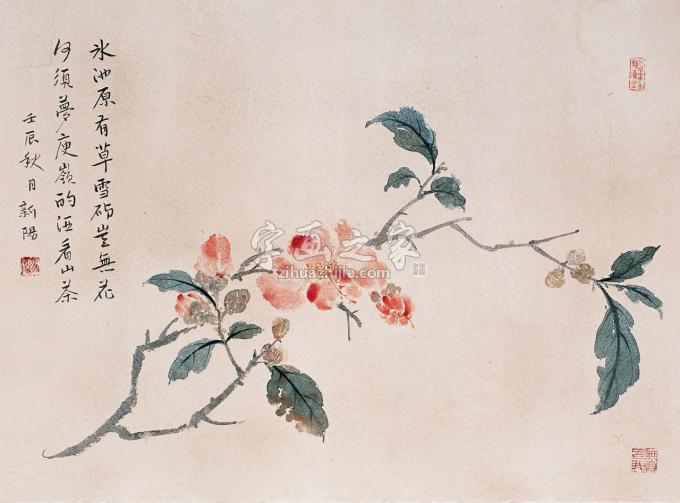 氷池原有草雪砌豈無花
何須夢庾嶺酌酒看山茶
壬辰秋月新陽
字画之家
zihuazhijia.com